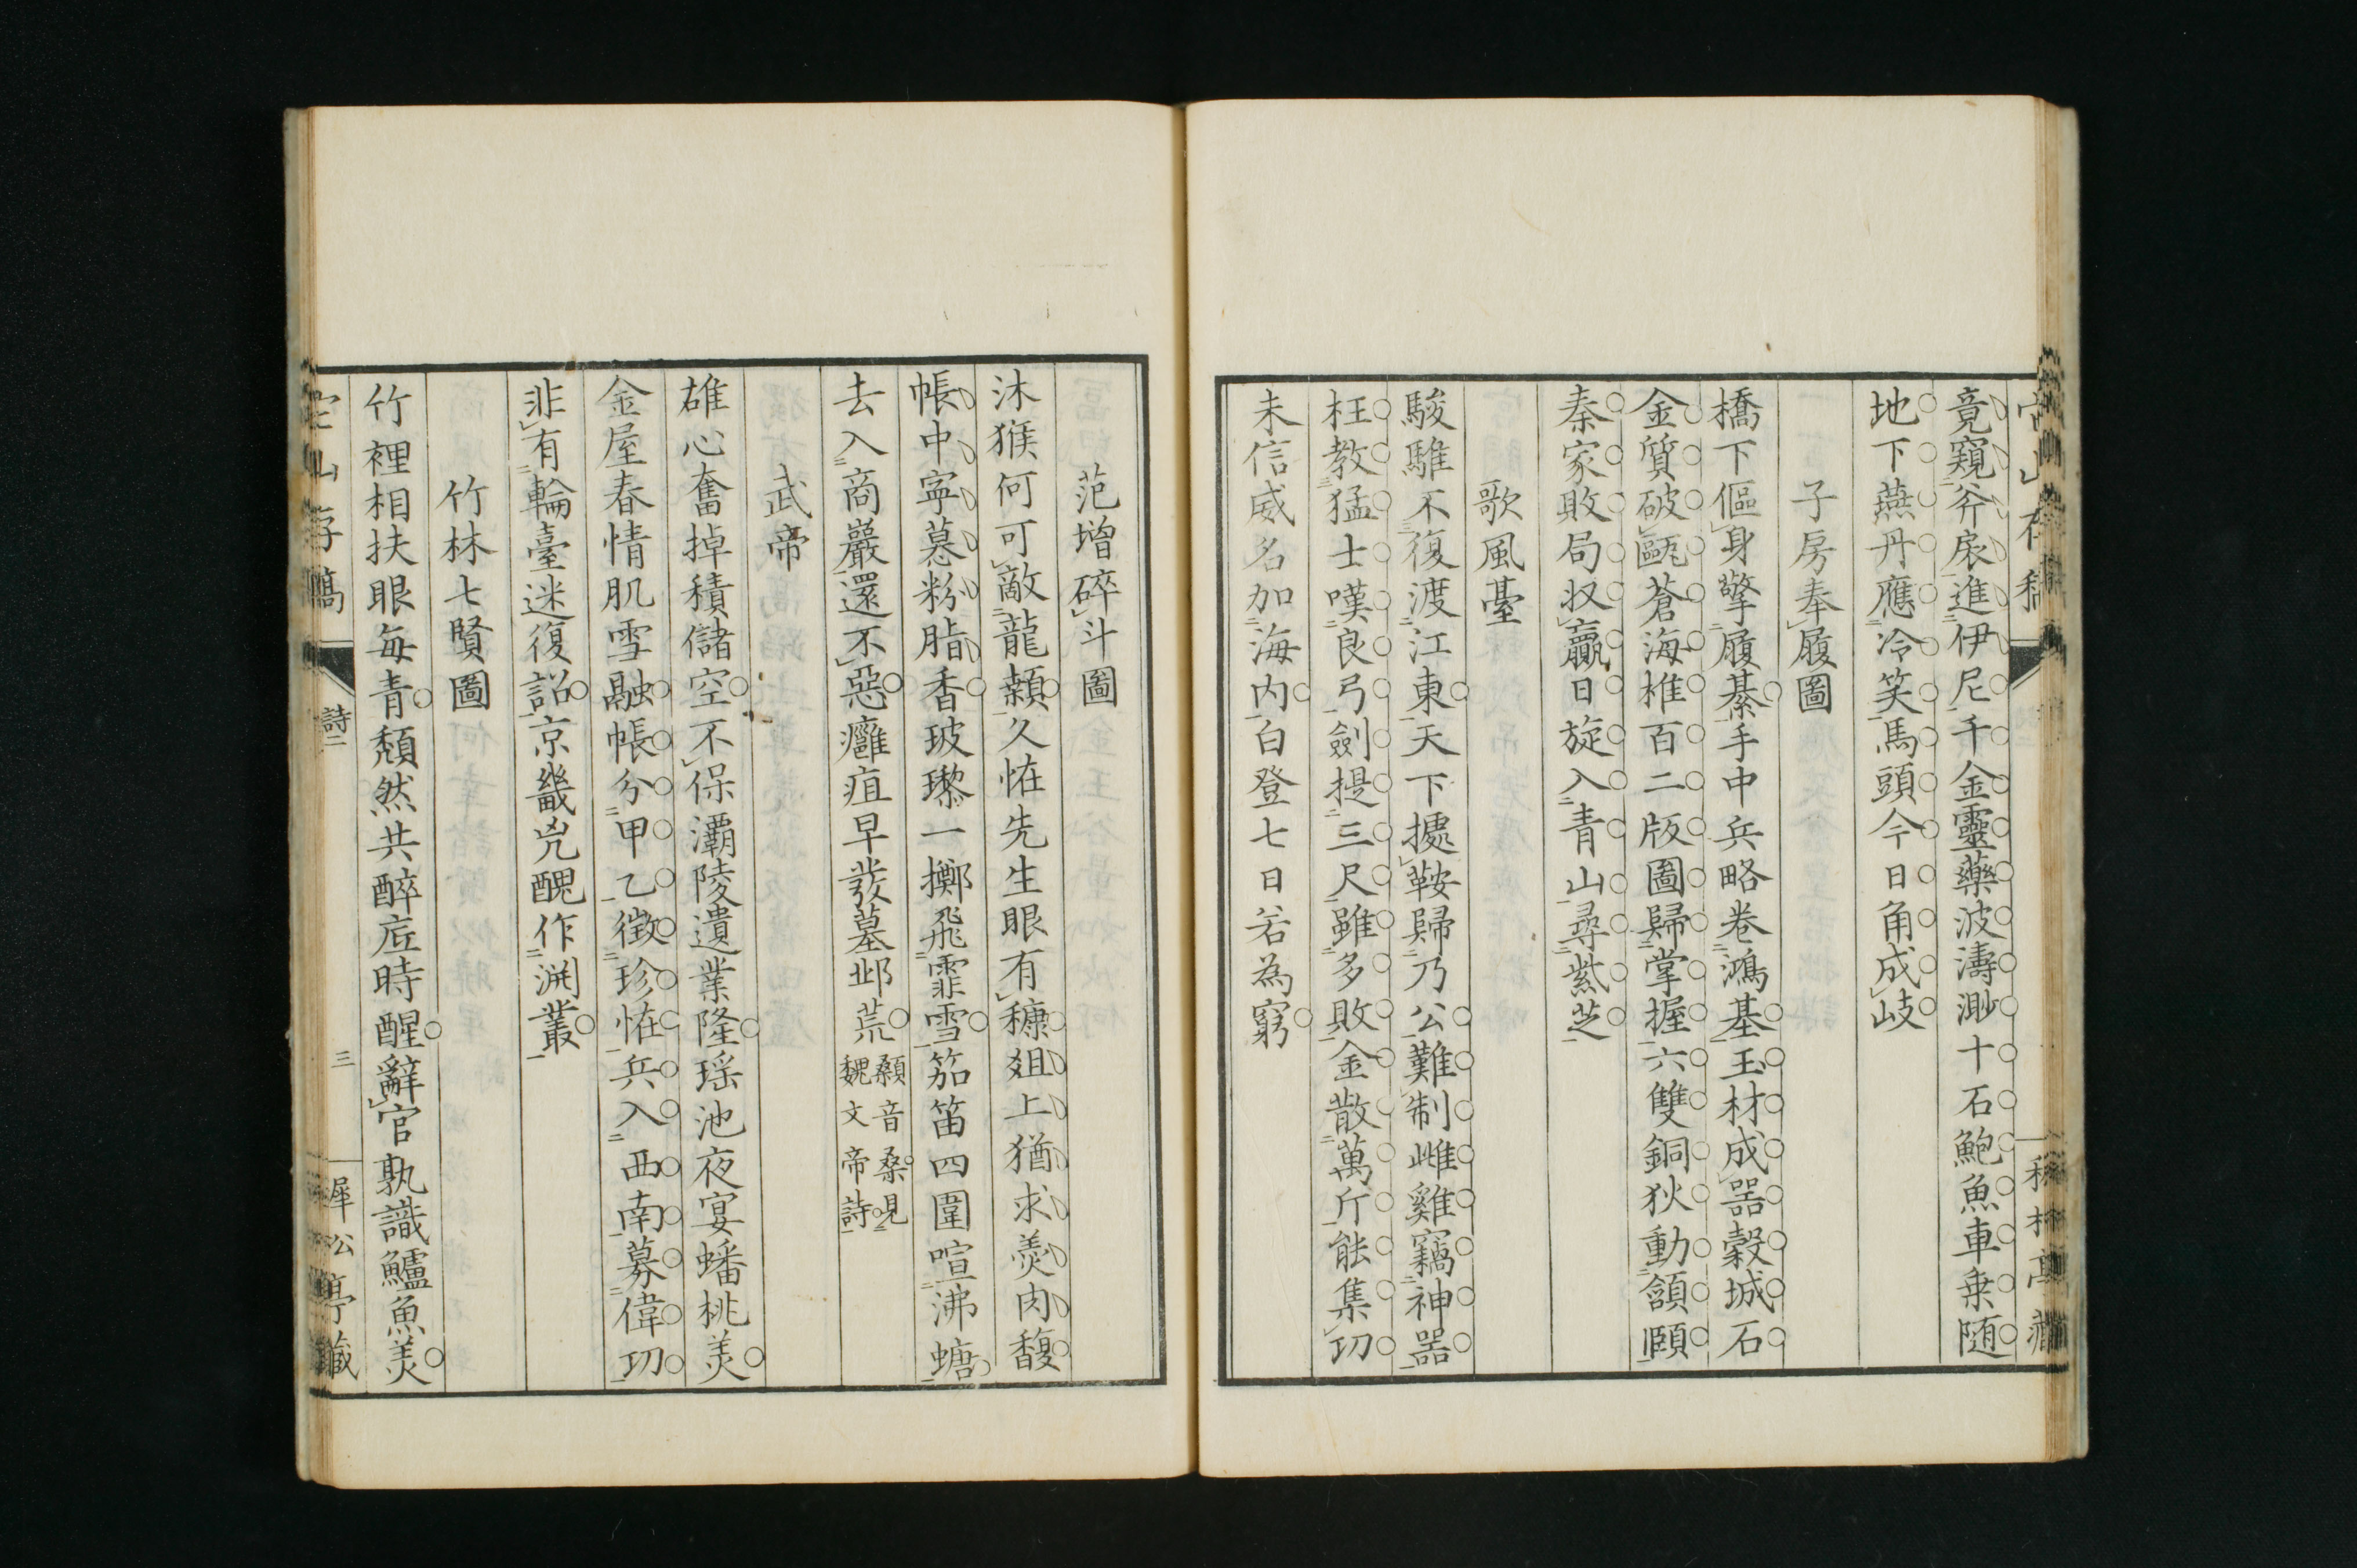 竟窺斧扆進伊尼千金靈藥波濤渺十石鮑魚車乗随
地下燕丹應冷笑馬頭今日角成岐
子房奉履圖
橋下傴身擎履綦手中兵略卷鴻基玉材成器穀城石
金質破甌蒼海椎百二版圖歸掌握六雙銅狄動頷頤
秦家敗局収贏日旋入青山尋紫芝
歌風臺
駿騅不復渡江東天下攄鞍歸乃公難制雌雞竊神器
枉教猛士嘆良弓劍提三尺雖多敗金散萬斤能集功
未信威名加海内白登七日若為窮
范增碎斗圖
沐猴何可敵龍顙久恠先生眼有糠俎上猶求羮肉馥
帳中寧慕粉脂香玻瓈一擲飛霏雪笳笛四圍喧沸螗
去入商巖還不惡癰疽早發墓邺荒
顙音桑見
魏文帝詩
武帝
雄心奮掉積儲空不保灞陵遺業隆瑶池夜宴蟠桃羮
金屋春情肌雪融帳分甲乙徴珍恠兵入西南募偉功
非有輪臺迷復詔京畿兇醜作淵叢
竹林七賢圖
竹裡相扶眼毎青頽然共醉庒時醒辭官孰識鱸魚羮
空山存稿
詩二
三
犀公亭藏